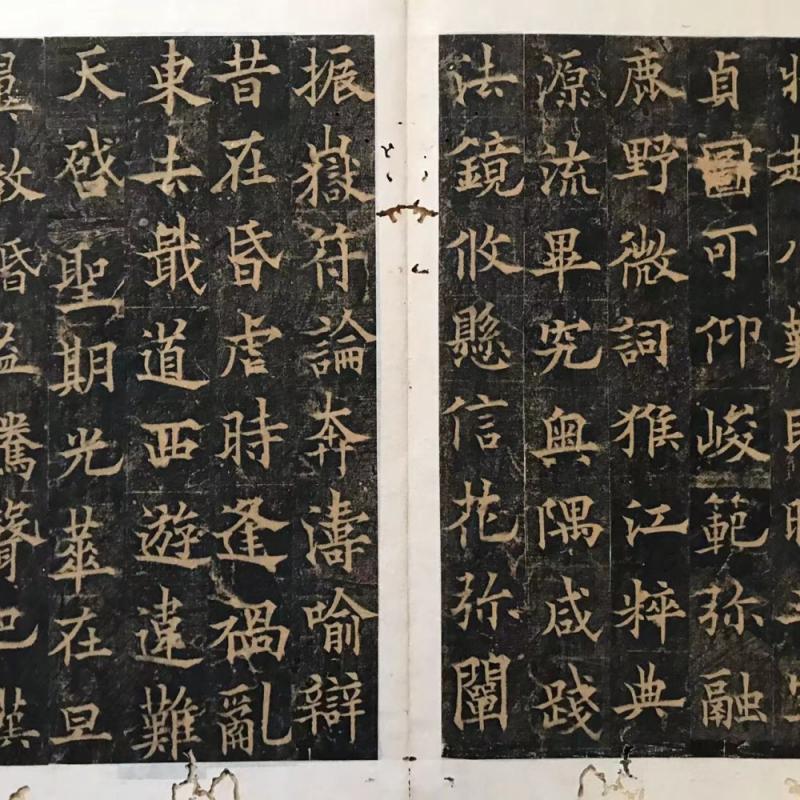 貞圖可仰峻範弥融
鹿野微詞猴江粹典
源流畢究奥隅咸踐
法鏡攸懸信花弥闡
振嶽符論奔濤喻辯
昔在昏虐時逢禍亂
東去戢道西遊違難
天啓聖期光華在旦
騰聲巴漢